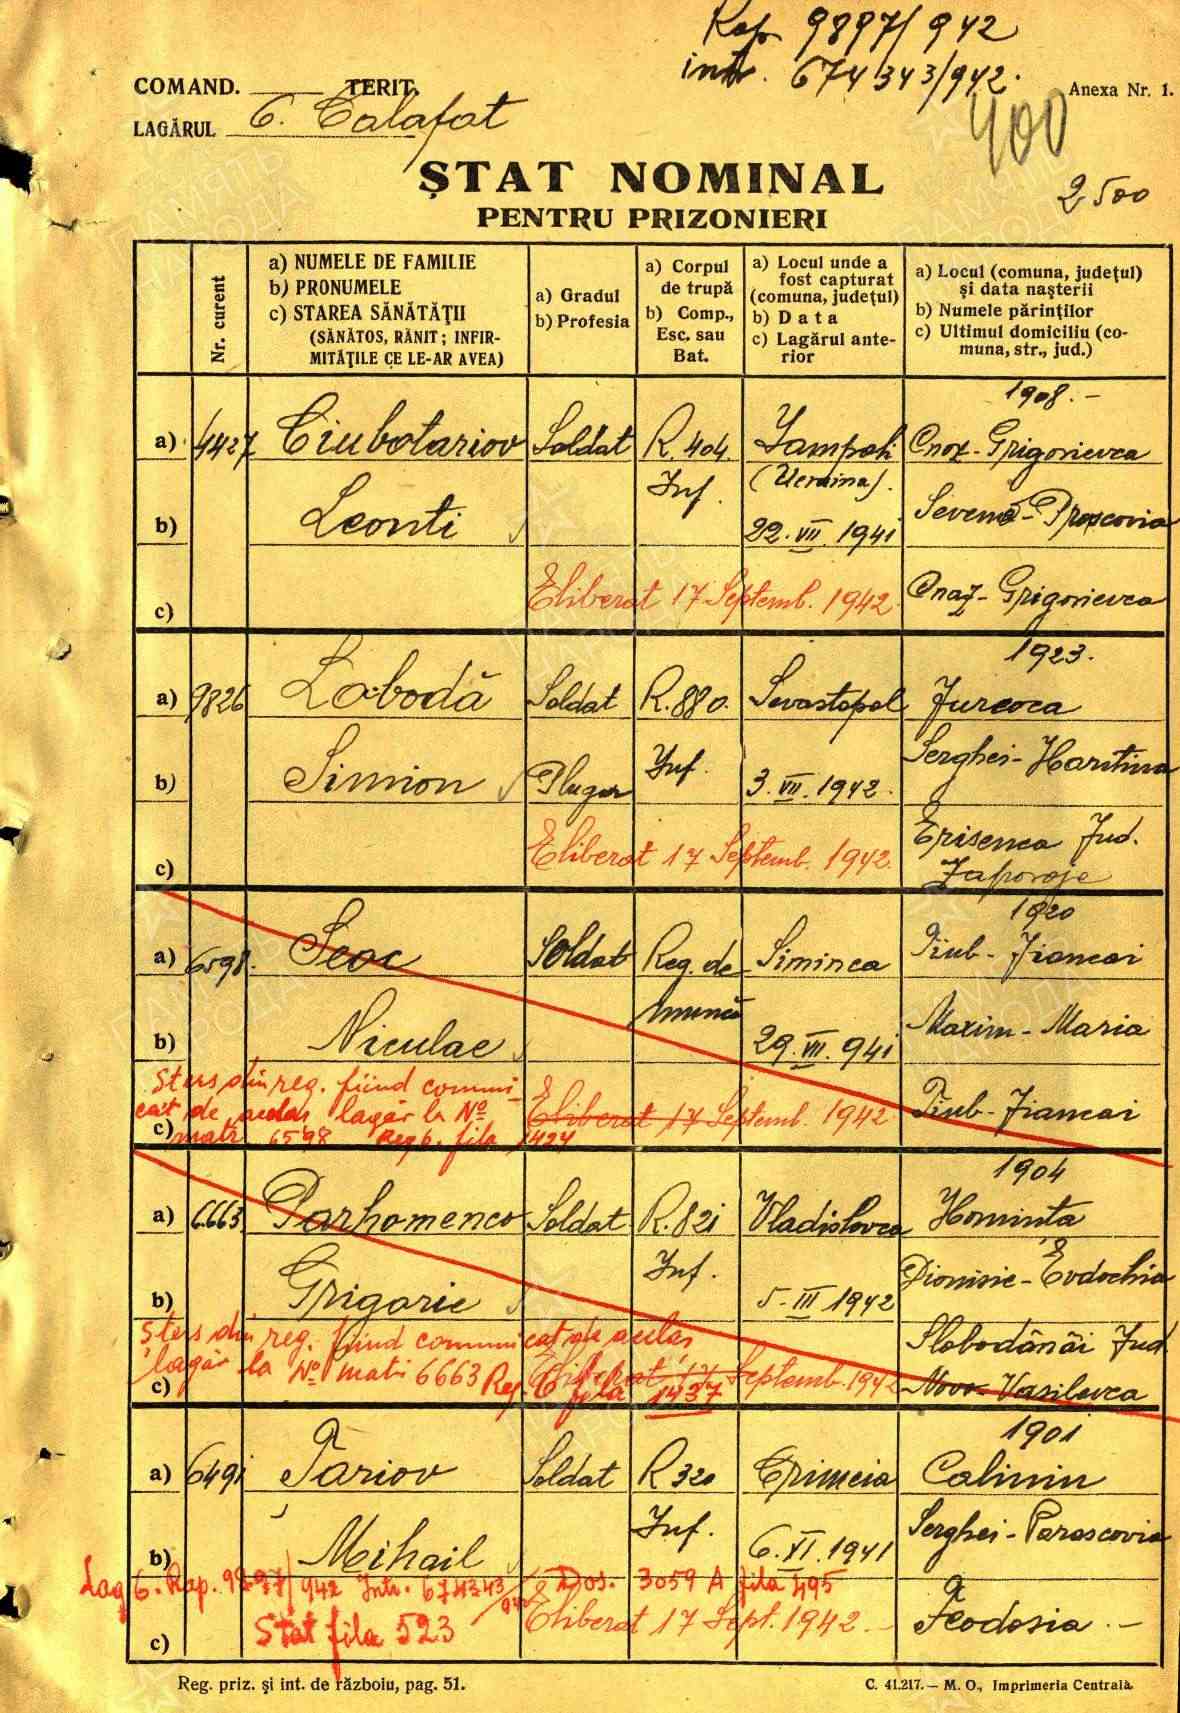 Rap. 9897/942
intr. 674343/942.
COMAND. TERIT.
Anexa Nr. 1.
LAGĂRUL 6. Calafat
400
ȘTAT NOMINAL
2500
PENTRU PRIZONIERI
Nr. curent
a) NUMELE DE FAMILIE
b) PRONUMELE
c) STAREA SĂNĂTĂȚII
(SĂNĂTOS, RĂNIT; INFIR-
MITĂȚILE CE LE-AR AVEA)
a) Gradul
b) Profesia
a) Corpul
de trupă
b) Comp.,
Esc. sau
Bat.
a) Locul unde a
fost capturat
(comuna, județul)
b) Data
c) Lagărul ante-
rior
a) Locul (comuna, județul)
și data nașterii
b) Numele părinților
c) Ultimul domiciliu (co-
muna, str., jud.)
1908.-
a) 4427 Ciubotariov Soldat R. 404. Iampoli Cnoz-Grigorievca
Inf. (Ucraina).
b) Leonti 22.VII.1941 Proscovia
c) Eliberat 17 Septemb. 1942. Cnaz-Grigorievca
1923.
a) 9826 Lobodă Soldat R. 880. Sevastopol Jurcoca
b) Simion Plugar Inf. 3.VII.1942. Serghei-Haritina
c) Eliberat 17 Septemb. 1942. Crisenca Jud.
Zaporoje
1920
a) 6598. Scoc Soldat Reg. de Siminca
muncă
b) Niculae 29.VII.941 Maxim-Maria
Șters din reg. fiind comuni-
cat de acelaș lagăr la No
c) Eliberat 17 Septemb. 1942
matr. 6598 Reg 6. fila 1424
1904
a) 6663. Parhomenco Soldat R. 821 Vladislovca Hominta
b) Grigorie Inf. 5-III 1942 Dionisie-Evdochia
Șters din reg. fiind comunicat de acelaș Slobodănăi Jud.
lagăr la No mati 6663 Reg. 6 fila 1437
c) Eliberat 17 Septemb. 1942 Novo-Vasilevca
1901
a) 6491 Țariov Soldat R 320 Crimeia Calinin
b) Mihail Inf. 6.XI.1941 Serghei-Parascovia
Lag 6. Rap. 9897/942 Intr. 674343/942 Dos. 3059 A fila 495
c) Stat fila 523 Eliberat 17 Sept. 1942.- Feodosia.-
Reg. priz. și int. de războiu, pag. 51.
C. 41.217.— M. O., Imprimeria Centrală.
ПАМЯТЬ
НАРОДА